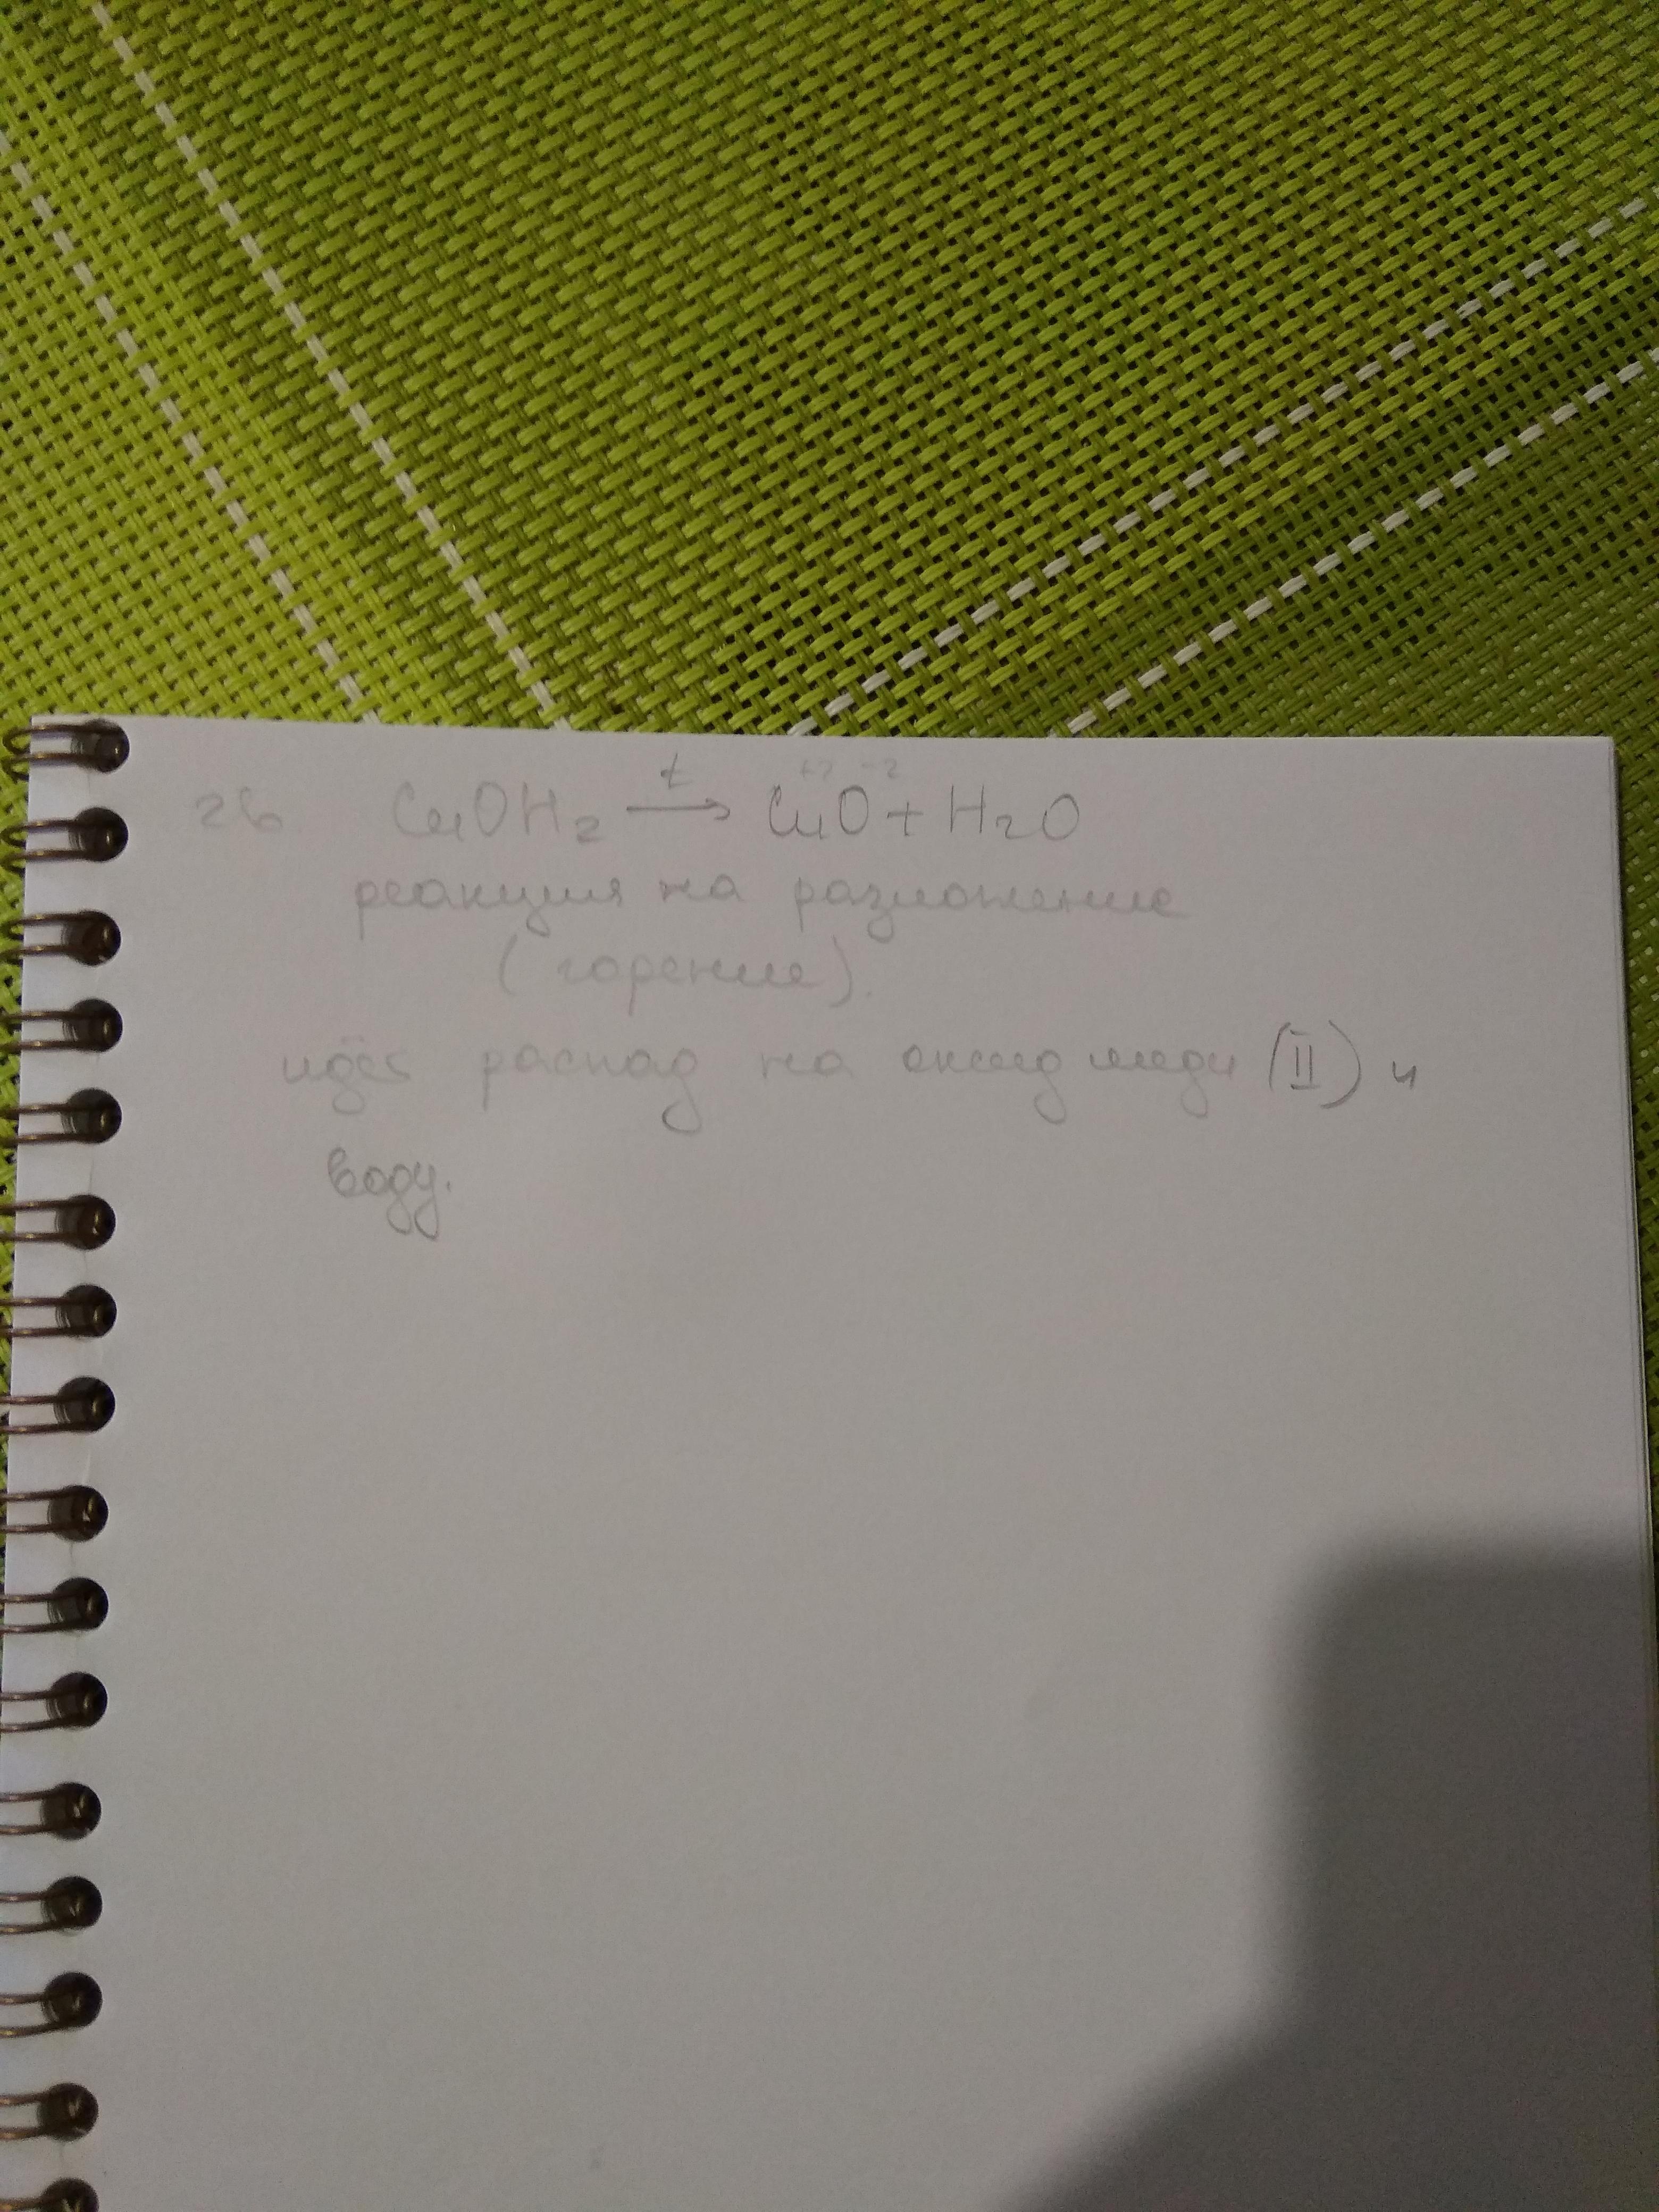 26 CuOH2 t→ CuO + H2O
+2 -2
реакция на разложение
(горение).
идёт распад на оксид меди (II) и
воду.